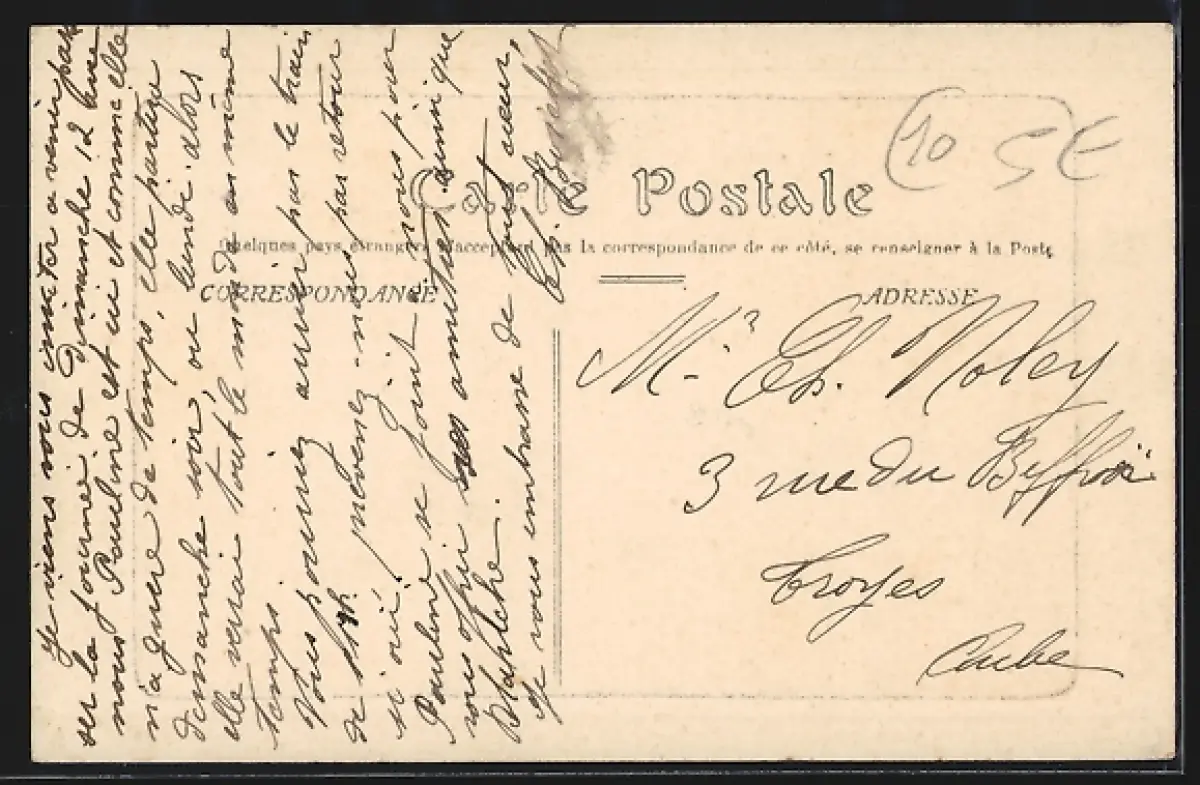 Carte Postale
Quelques pays étrangers n'acceptent pas la correspondance de ce côté, se renseigner à la Poste
CORRESPONDANCE
ADRESSE
Je viens vous inviter a venir pas
ser la journée de Dimanche 12 Pauline est ici et comme elle
n'a guère de temps, elle partira
dimanche soir, ou lundi. alors
elle verrai tout le monde en même
temps
Vous pourrez arriver par le train
de prévenez-nous par retour
si oui.
Pauline se joint à nous pour
vous offrir nos amitiés ainsi que
Blanche.
Je vous embrasse de tout cœur,
Mr Eh. Noley
3 rue du Beffroi
Troyes
Aube
10 5€